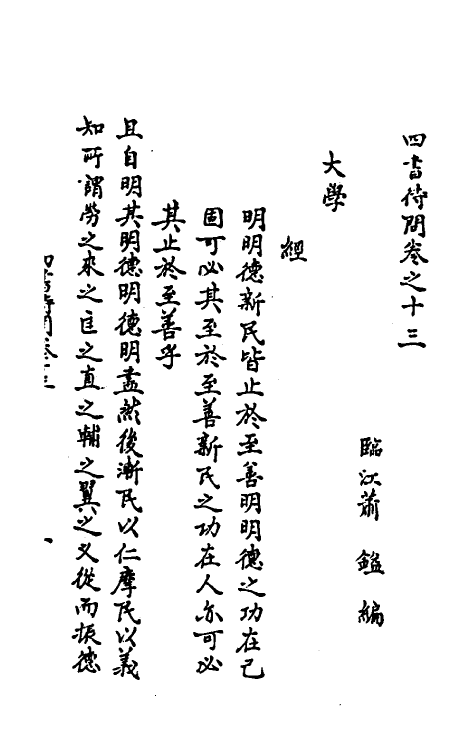 四書待問卷之十三
臨江蕭 鎰 編
大學
經
明明德新民皆止於至善明明德之功在己
固可必其至於至善新民之功在人亦可必
其止於至善乎
且自明其明德明德明盡然後漸民以仁摩民以義
知所謂勞之來之匡之直之輔之翼之又從而振德
四書待問卷十三
一